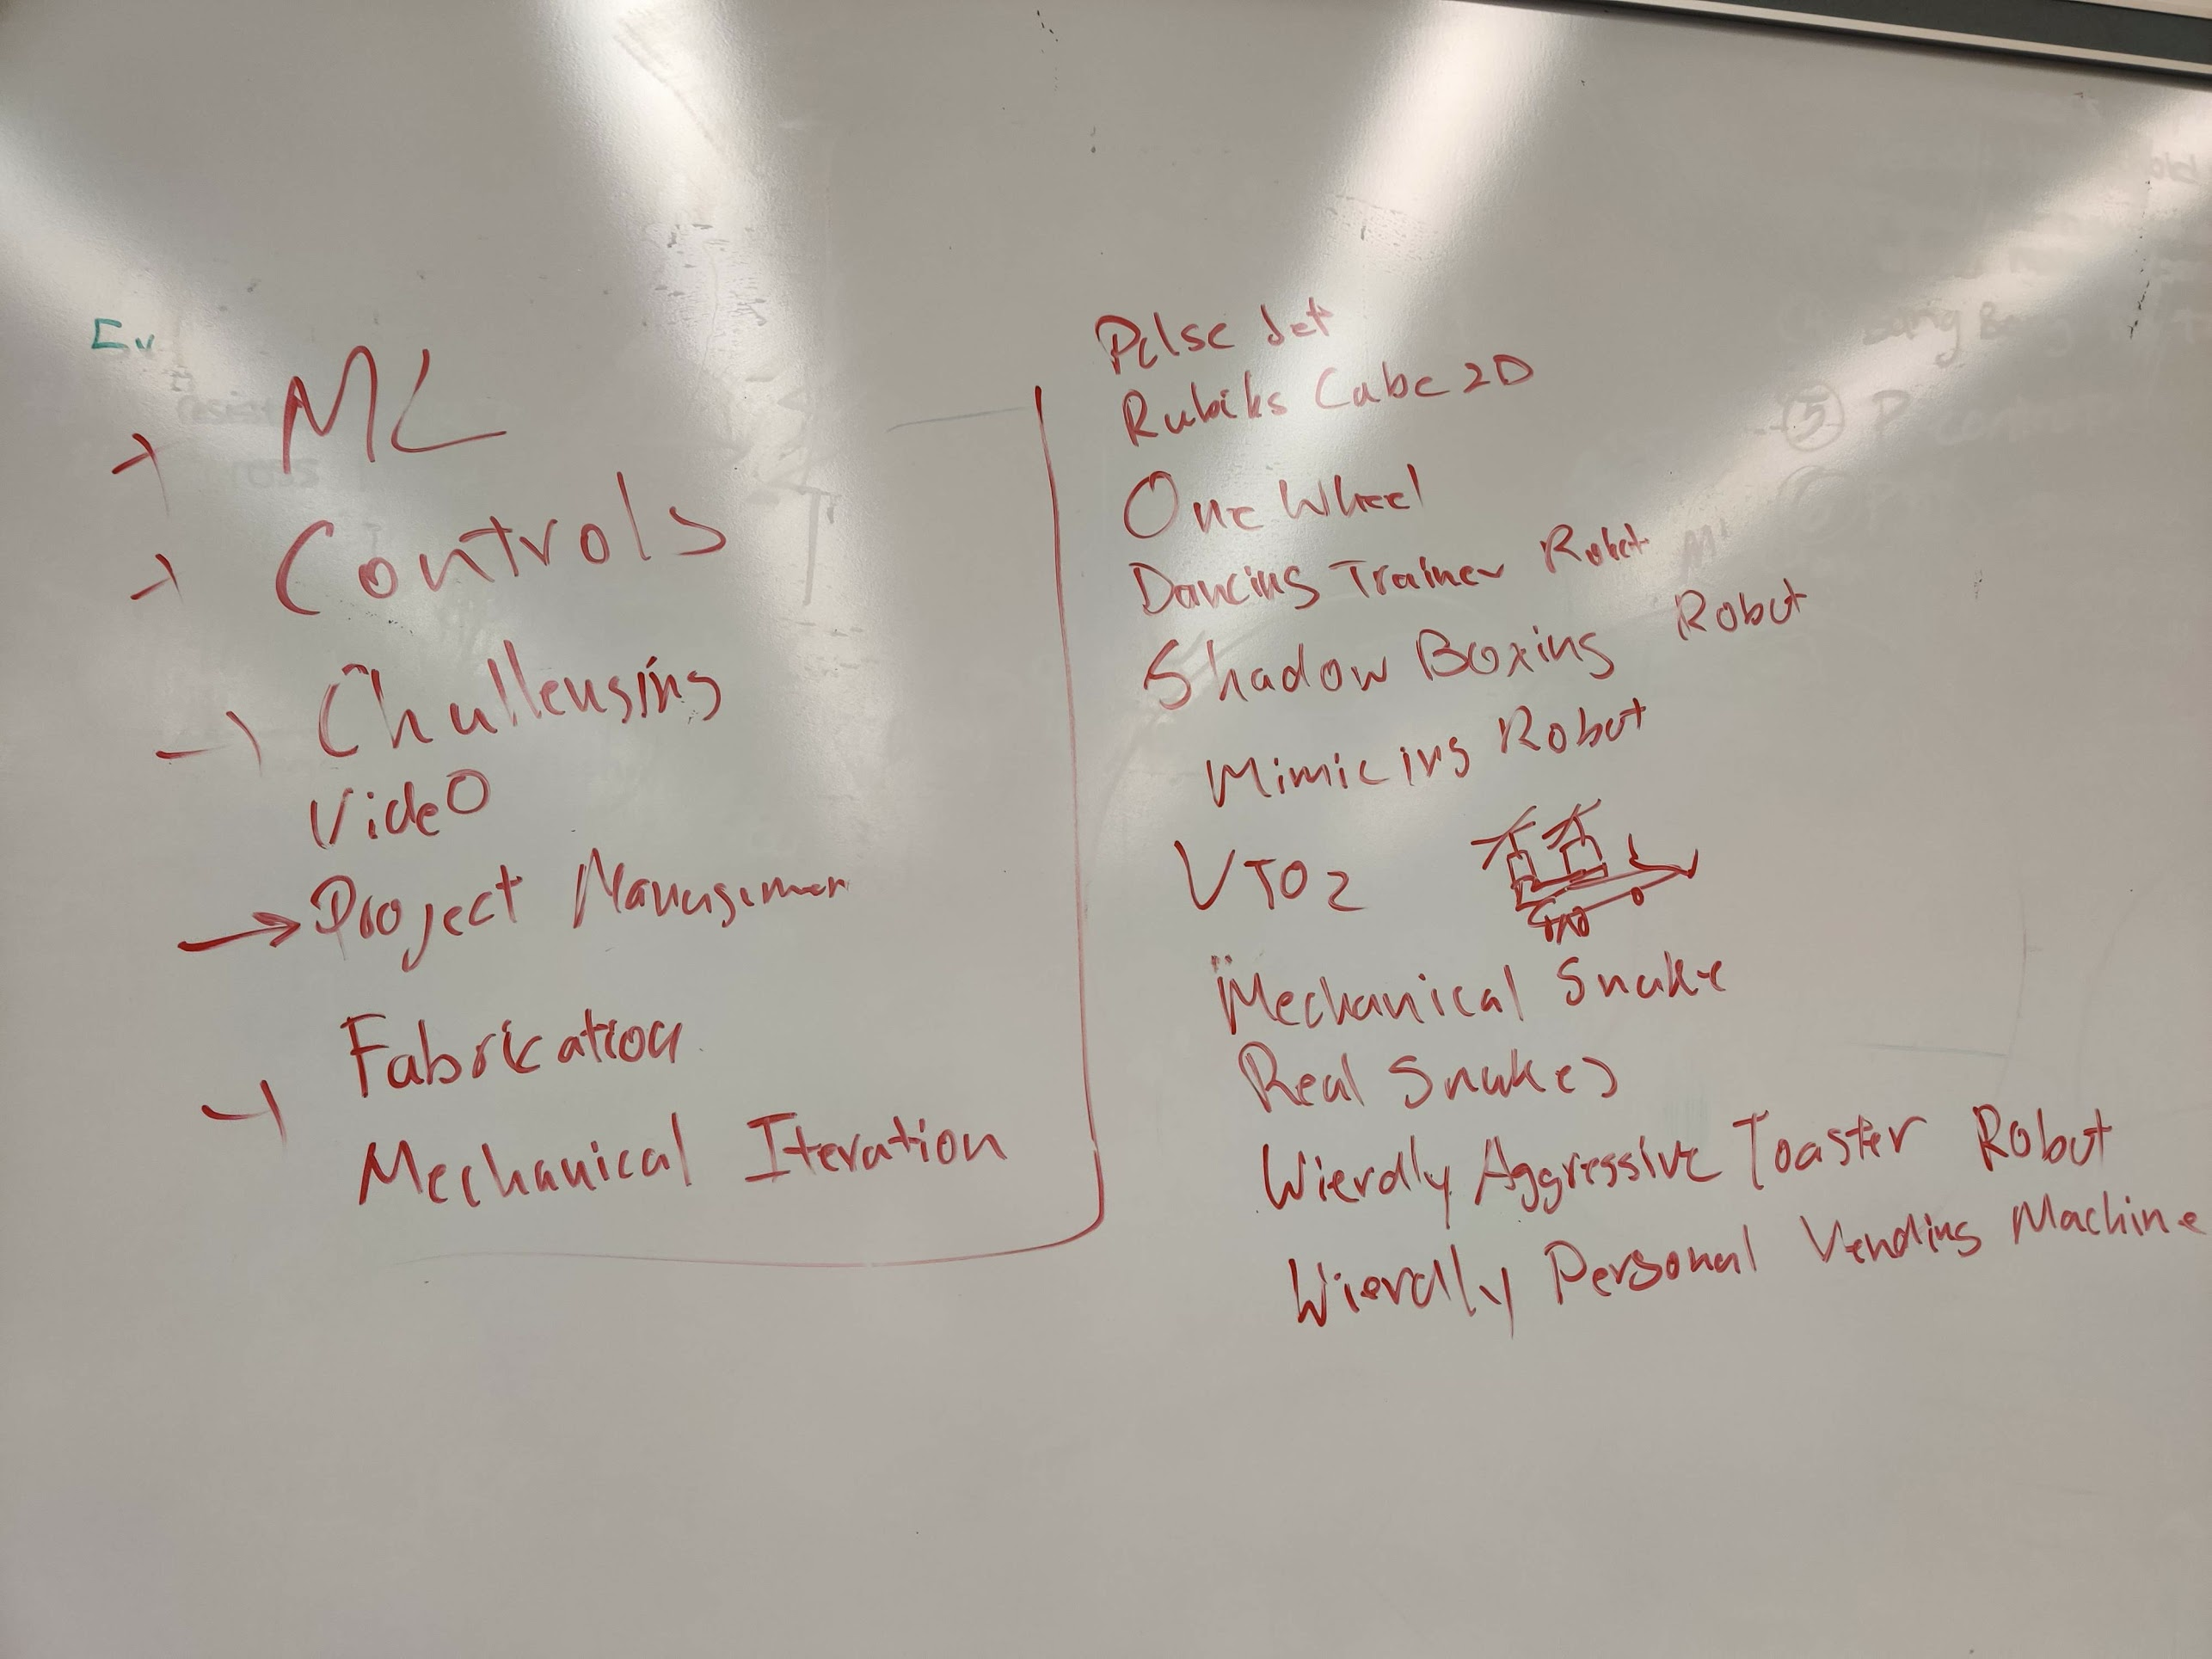 ML
Controls
Challenging
Video
Project Managemen
Fabrication
Mechanical Iteration
Pulse Jet
Rubiks Cube 2D
One Wheel
Dancing Trainer Robot
Shadow Boxing Robot
Mimicing Robot
VTO2
Mechanical Snake
Real Snakes
Wierdly Aggressive Toaster Robot
Wierdly Personal Vending Machine